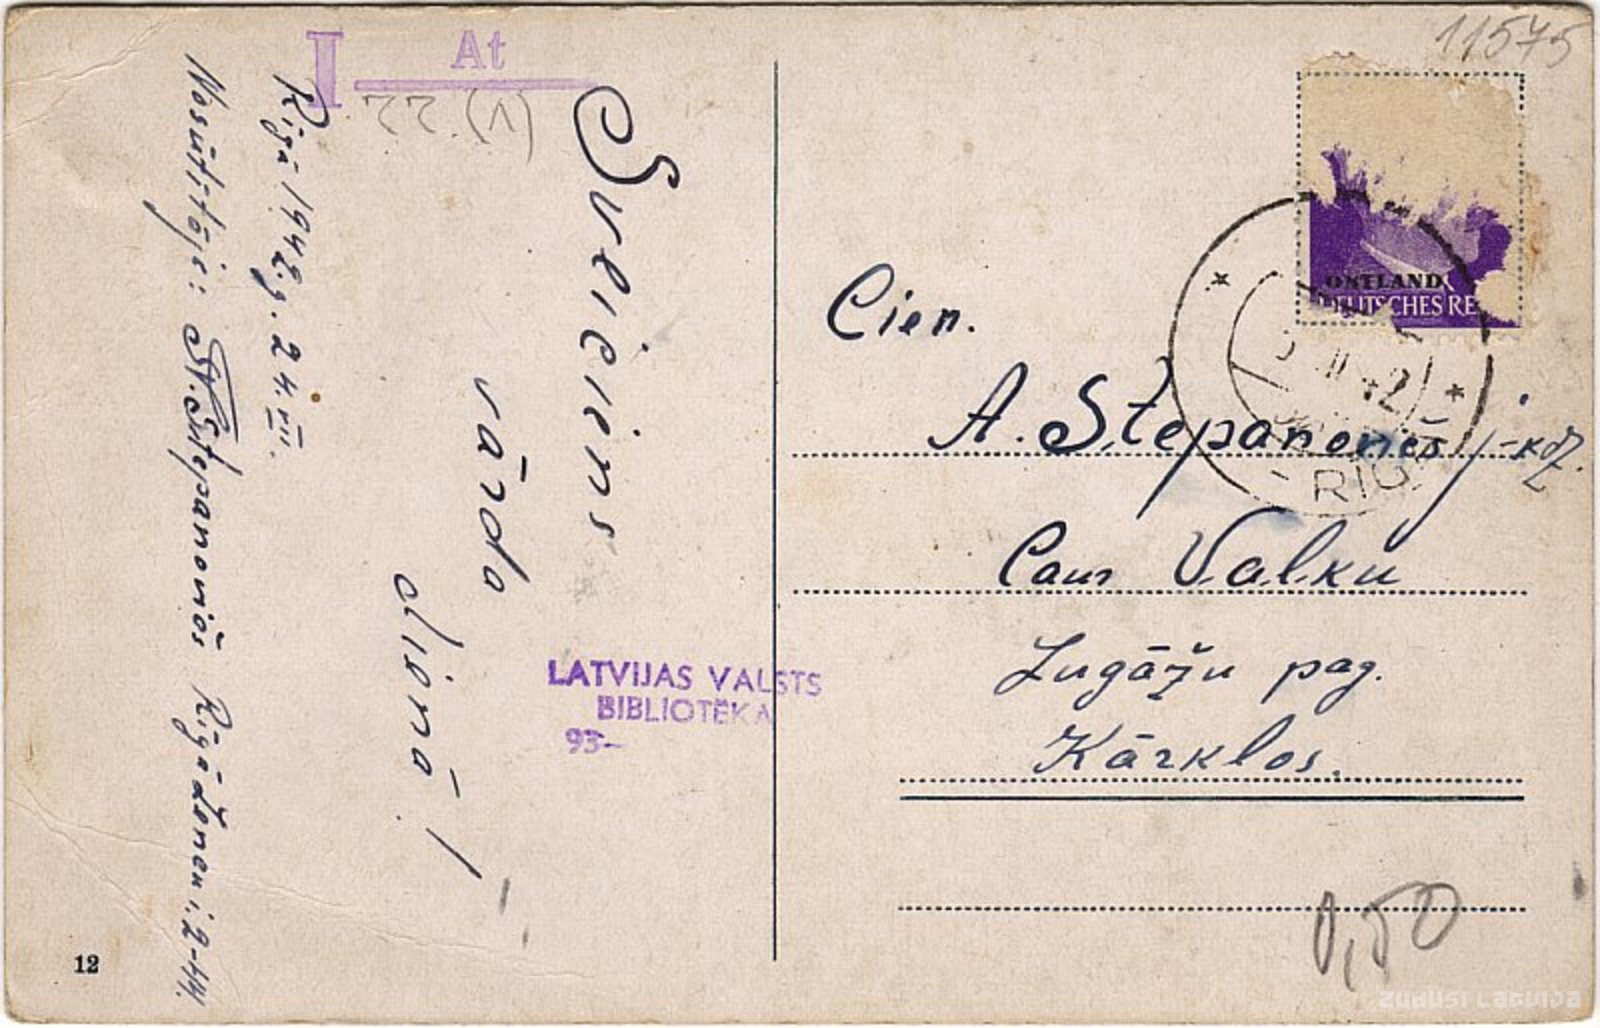 I At
(V) 22
Sveiciens
vārda
dienā!
Rīgā 1942.g. 24.VII.
Nosūtītājs: Stepanovičs Rīgā
12
LATVIJAS VALSTS
BIBLIOTĒKA
93-
11575
OSTLAND
DEUTSCHES RE
42
RIGA
Cien.
A. Stepanovičs j-kdz.
Caur Valku
Lugāžu pag.
Kārklos.
0,50
ZUDUSI LATVIJA